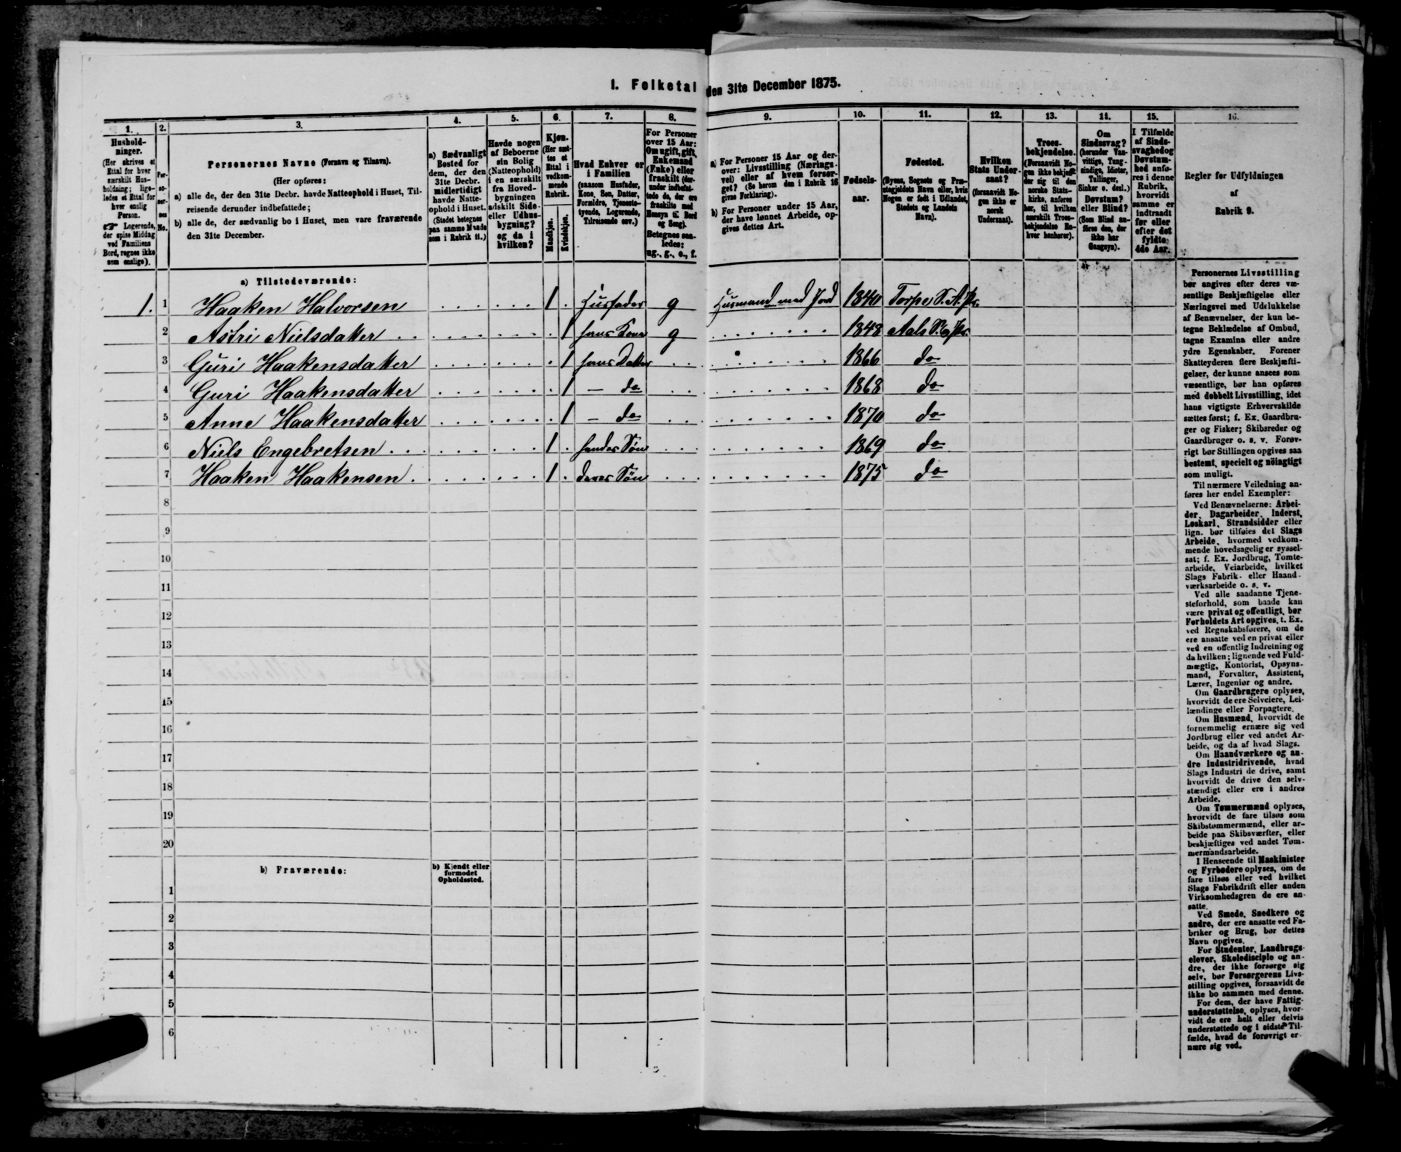 I. Folketal den 31te December 1875.
1. 2. 3. 4. 5. 6. 7. 8. 9. 10. 11. 12. 13. 14. 15. 16.
Husholdninger.
(Her skrives et Ettal for hver særskilt Husholdning; ligeledes et Ettal for hver enslig Person.
Logerende, der spise Middag ved Familiens Bord, regnes ikke som enslige).
Personernes No.
Personernes Navne (Fornavn og Tilnavn).
(Her opføres:
a) alle de, der den 31te Decbr. havde Natteophold i Huset, Tilreisende derunder indbefattede;
b) alle de, der sædvanlig bo i Huset, men vare fraværende den 31te December.
a) Sædvanligt Bosted for dem, der den 31te Decbr. midlertidigt havde Natteophold i Huset.
(Stedet betegnes paa samme Maade som i Rubrik 11.)
Havde nogen af Beboerne sin Bolig (Natteophold) i en særskilt fra Hovedbygningen adskilt Side- eller Udhusbygning? og da i hvilken?
Kjøn.
(Her sættes et Ettal i vedkommende Rubrik.
Mandkjøn.
Kvindekjøn.
Hvad Enhver er i Familien
(saasom Husfader, Kone, Søn, Datter, Forældre, Tjenestetyende, Logerende, Tilreisende osv.)
For Personer over 15 Aar: Om ugift, gift, Enkemand (Enke) eller fraskilt
Betegnes saaledes: ug., g., e., f.
a) For Personer 15 Aar og derover: Livsstilling (Næringsvei) eller af hvem forsørget? (Se herom den i Rubrik 16 givne Forklaring).
b) For Personer under 15 Aar, der have lønnet Arbeide, opgives dettes Art.
Fødselsaar.
Fødested.
(Byens, Sognets og Præstegjeldets Navn eller, hvis Nogen er født i Udlandet, Stedets og Landets Navn).
Hvilken Stats Undersaat?
(forsaavidt Nogen ikke er norsk Undersaat).
Troesbekjendelse.
(Forsaavidt Nogen ikke bekjender sig til den norske Statskirke, anføres her, til hvilken særskilt Troesbekjendelse Enhver henhører).
Om Sindssvag?
(herunder Vanvittige, Tungsindige, Idioter, Tullinger, Sinker o. desl.)
Døvstum? eller Blind?
(Som Blind anføres den, der ikke har Gangsyn).
I Tilfælde af Sindssvaghed og Døvstumhed anføres i denne Rubrik, hvorvidt samme er indtraadt før eller efter det fyldte 4de Aar.
Regler for Udfyldningen
af
Rubrik 9.
a) Tilstedeværende:
1. 1 Haaken Halvorsen 1 Husfader g Husmand med Jord 1840
2 Astri Nielsdatter 1 hans Kone g 1848
3 Guri Haakensdatter 1 hans Datter 1866 do
4 Guri Haakensdatter 1 — do 1868 do
5 Anne Haakensdatter 1 do 1870 do
6 Niels Engebretsen 1 hendes Søn 1869 do
7 Haaken Haakensen 1 deres Søn 1875 do
8
9
10
11
12
13
14
15
16
17
18
19
20
b) Fraværende:
b) Kjendt eller formodet Opholdssted.
1
2
3
4
5
6
Personernes Livsstilling
bør angives efter deres væ-
sentlige Beskjæftigelse eller
Næringsvei med Udelukkelse
af Benævnelser, der kun be-
tegne Beklædelse af Ombud,
tagne Examina eller andre
ydre Egenskaber. Forener
Skatteyderen flere Beskjæfti-
gelser, der kunne ansees som
væsentlige, bør han opføres
med dobbelt Livsstilling, idet
hans vigtigste Erhvervskilde
sættes først; f. Ex. Gaardbru-
ger og Fisker; Skibsreder og
Gaardbruger o. s. v. Forøv-
rigt bør Stillingen opgives saa
bestemt, specielt og nöiagtigt
som muligt.
Til nærmere Veiledning an-
føres her endel Exempler:
Ved Benævnelserne: Arbei-
der, Dagarbeider, Inderst,
Løskarl, Strandsidder eller
lign. bør tilføies det Slags
Arbeide, hvormed vedkom-
mende hovedsagelig er syssel-
sat; f. Ex. Jordbrug, Tomte-
arbeide, Veiarbeide, hvilket
Slags Fabrik- eller Haand-
værksarbeide o. s. v.
Ved alle saadanne Tjene-
steforhold, som baade kan
være privat og offentligt, bør
Forholdets Art opgives, t. Ex.
ved Regnskabsførere, om de
ere ansatte ved en privat eller
ved en offentlig Indretning og
da hvilken; lignende ved Fuld-
mægtig, Kontorist, Opsyns-
mand, Forvalter, Assistent,
Lærer, Ingeniør og andre.
Om Gaardbrugere oplyses,
hvorvidt de ere Selveiere, Lei-
lændinge eller Forpagtere.
Om Husmænd, hvorvidt de
fornemmelig ernære sig ved
Jordbrug eller ved andet Ar-
beide, og da af hvad Slags.
Om Haandværkere og an-
dre Industridrivende, hvad
Slags Industri de drive, samt
hvorvidt de drive den selv-
stændigt eller ere i andres
Arbeide.
Om Tømmermænd oplyses,
hvorvidt de fare tilsøs som
Skibstømmermænd, eller ar-
beide paa Skibsværfter, eller
beskjæftiges ved andet Tøm-
mermandsarbeide.
I Henseende til Maskinister
og Fyrbødere oplyses, om de
fare tilsøs eller ved hvilket
Slags Fabrikdrift eller anden
Virksomhedsgren de ere an-
satte.
Ved Smede, Snedkere og
andre, der ere ansatte ved Fa-
briker og Brug, bør dettes
Navn opgives.
For Studenter, Landbrugs-
elever, Skoledisciple og an-
dre, der ikke forsørge sig
selv, bør Forsørgerens Livs-
stilling opgives, forsaavidt de
ikke bo sammen med denne.
For dem, der have Fattig-
understøttelse, oplyses, hvor-
vidt de ere helt eller delvis
understøttede og i sidste Til-
fælde, hvad de forøvrigt er-
nære sig ved.